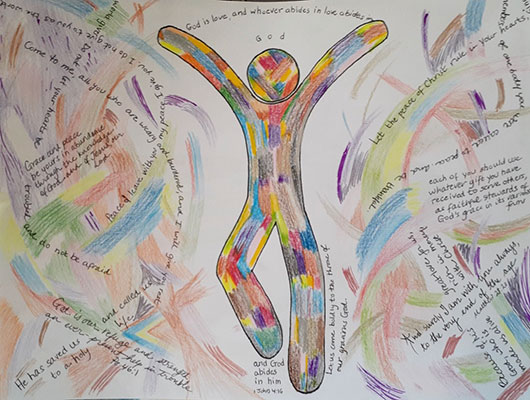 God is love, and whoever abides in love abides in
God
and God
abides
in him
1 John 4:16
Come to me all you who are weary and burdened, and I will give you rest
Peace I leave with you my peace
I give you
I do not give to you as the world gives
Do not let your hearts be
troubled and do not be afraid
Grace and peace
be yours in abundance
through the knowledge
of God and of Jesus our
Lord
God is our refuge and strength
an ever present help in trouble
46:1
He has saved us and called us
to a holy life
Let the peace of Christ rule in your hearts
since as members of
one body you were
called to peace and be
thankful
each of you should use
whatever gift you have
received to serve others,
as faithful stewards of
God's grace in its various
forms
Because of his
great love for us,
God who is rich in mercy
made us alive
And surely I am with you always
to the very end of the age
Let us come boldly to the throne of
our gracious God